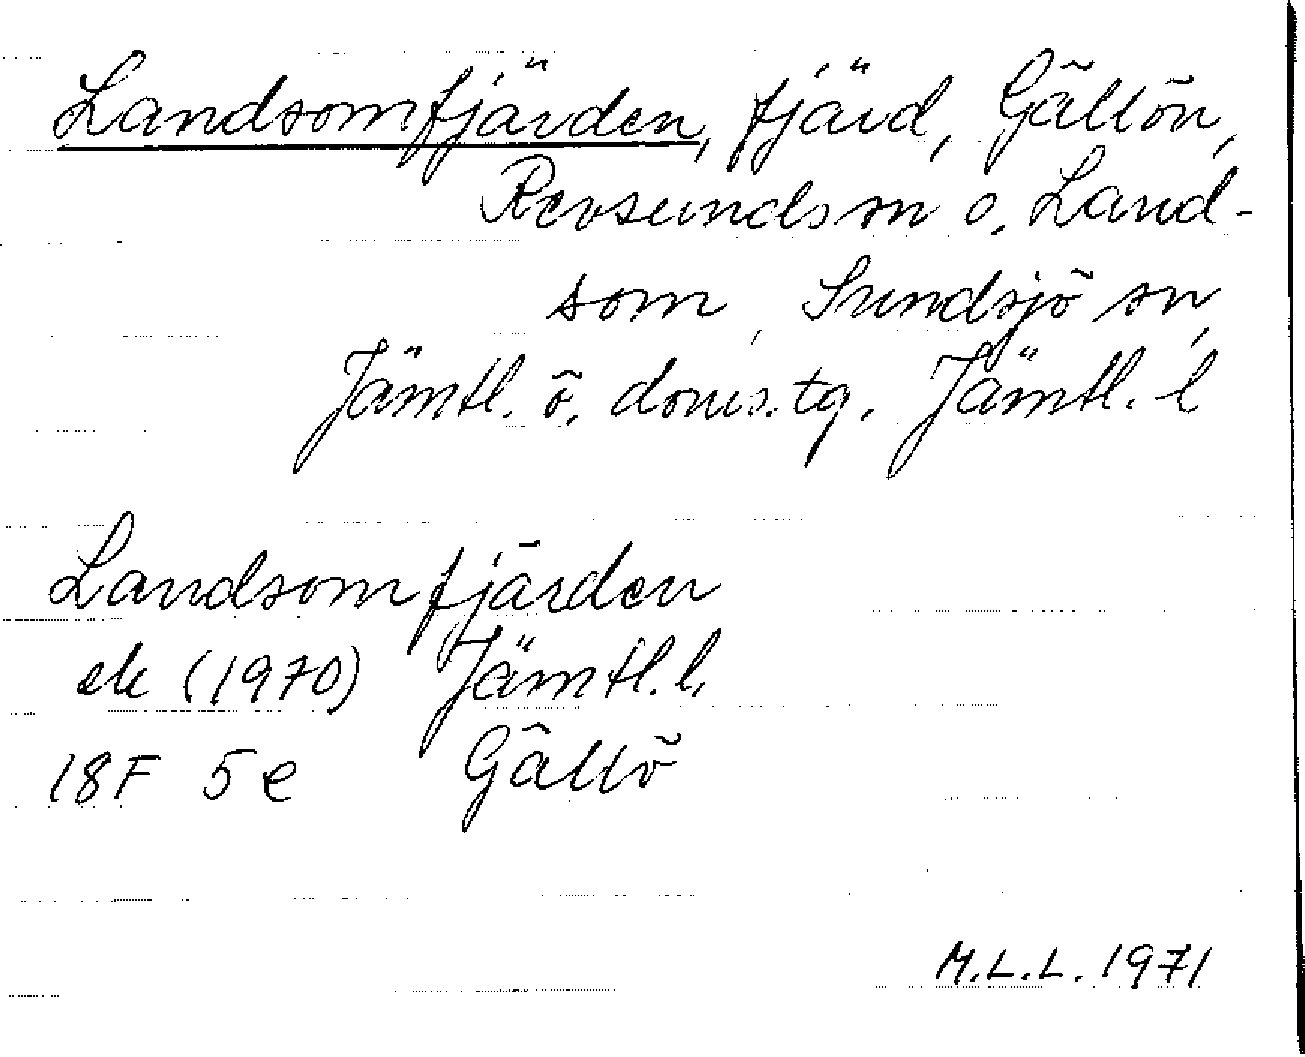 Landsomfjärden, fjärd, Gällön,
Revsunds sn o. Land-
som, Sundsjö sn,
Jämtl. ö. doms.tg. Jämtl. l
Landsomfjärden
ek (1970) Jämtl. l.
18F 5e Gällö
M.L.L. 1971